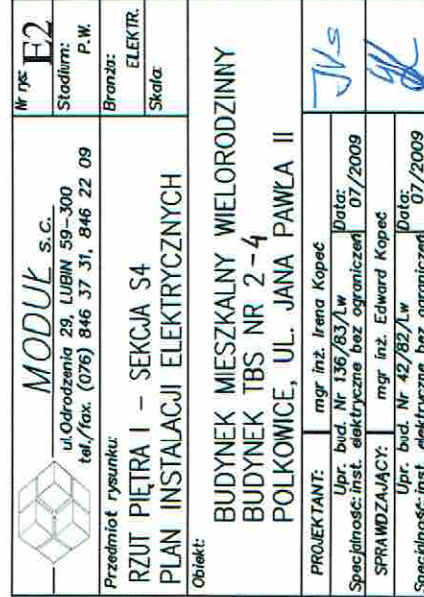 MODUŁ s.c.
ul.Odrodzenia 29, LUBIN 59-300
tel./fax. (076) 846 37 31, 846 22 09
Nr rys: E2
Stadium:
P.W.
Przedmiot rysunku:
RZUT PIĘTRA I - SEKCJA S4
PLAN INSTALACJI ELEKTRYCZNYCH
Branża:
ELEKTR.
Skala:
Obiekt:
BUDYNEK MIESZKALNY WIELORODZINNY
BUDYNEK TBS NR 2-4
POLKOWICE, UL. JANA PAWŁA II
PROJEKTANT: mgr inż. Irena Kopeć
Upr. bud. Nr 136/83/Lw Data:
Specjalność: inst. elektryczne bez ograniczeń 07/2009
SPRAWDZAJĄCY: mgr inż. Edward Kopeć
Upr. bud. Nr 42/82/Lw Data:
Specjalność: inst. elektryczne bez ograniczeń 07/2009